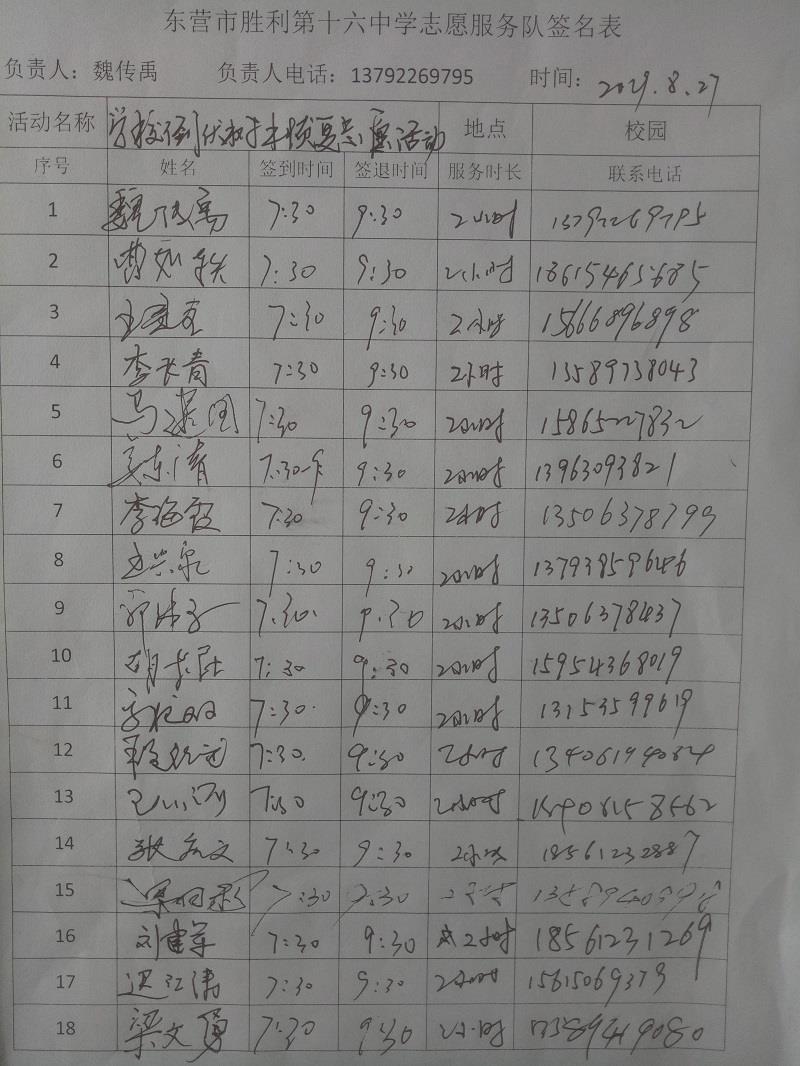 东营市胜利第十六中学志愿服务队签名表
负责人：魏传禹 负责人电话：13792269795 时间：2021.8.27
活动名称 学校 活动 地点 校园
序号 姓名 签到时间 签退时间 服务时长 联系电话
1 魏传禹 7:30 9:30 2小时 13792269795
2 7:30 9:30 2小时 18615465685
3 7:30 9:30 2小时 15666896898
4 李长青 7:30 9:30 2小时 13589738043
5 7:30 9:30 2小时 15865227832
6 7:30 9:30 2小时 13963093821
7 李梅霞 7:30 9:30 2小时 13506378799
8 7:30 9:30 2小时 13793859646
9 7:30 9:30 2小时 13506378437
10 7:30 9:30 2小时 15954368019
11 7:30 9:30 2小时 13153599619
12 7:30 9:30 2小时 13406194084
13 7:30 9:30 2小时
14 7:30 9:30 2小时 18561232887
15 7:30 9:30
16 刘建军 7:30 9:30 2小时 18561231269
17 7:30 9:30 2小时 15615069379
18 梁文勇 7:30 9:30 2小时 13589419080